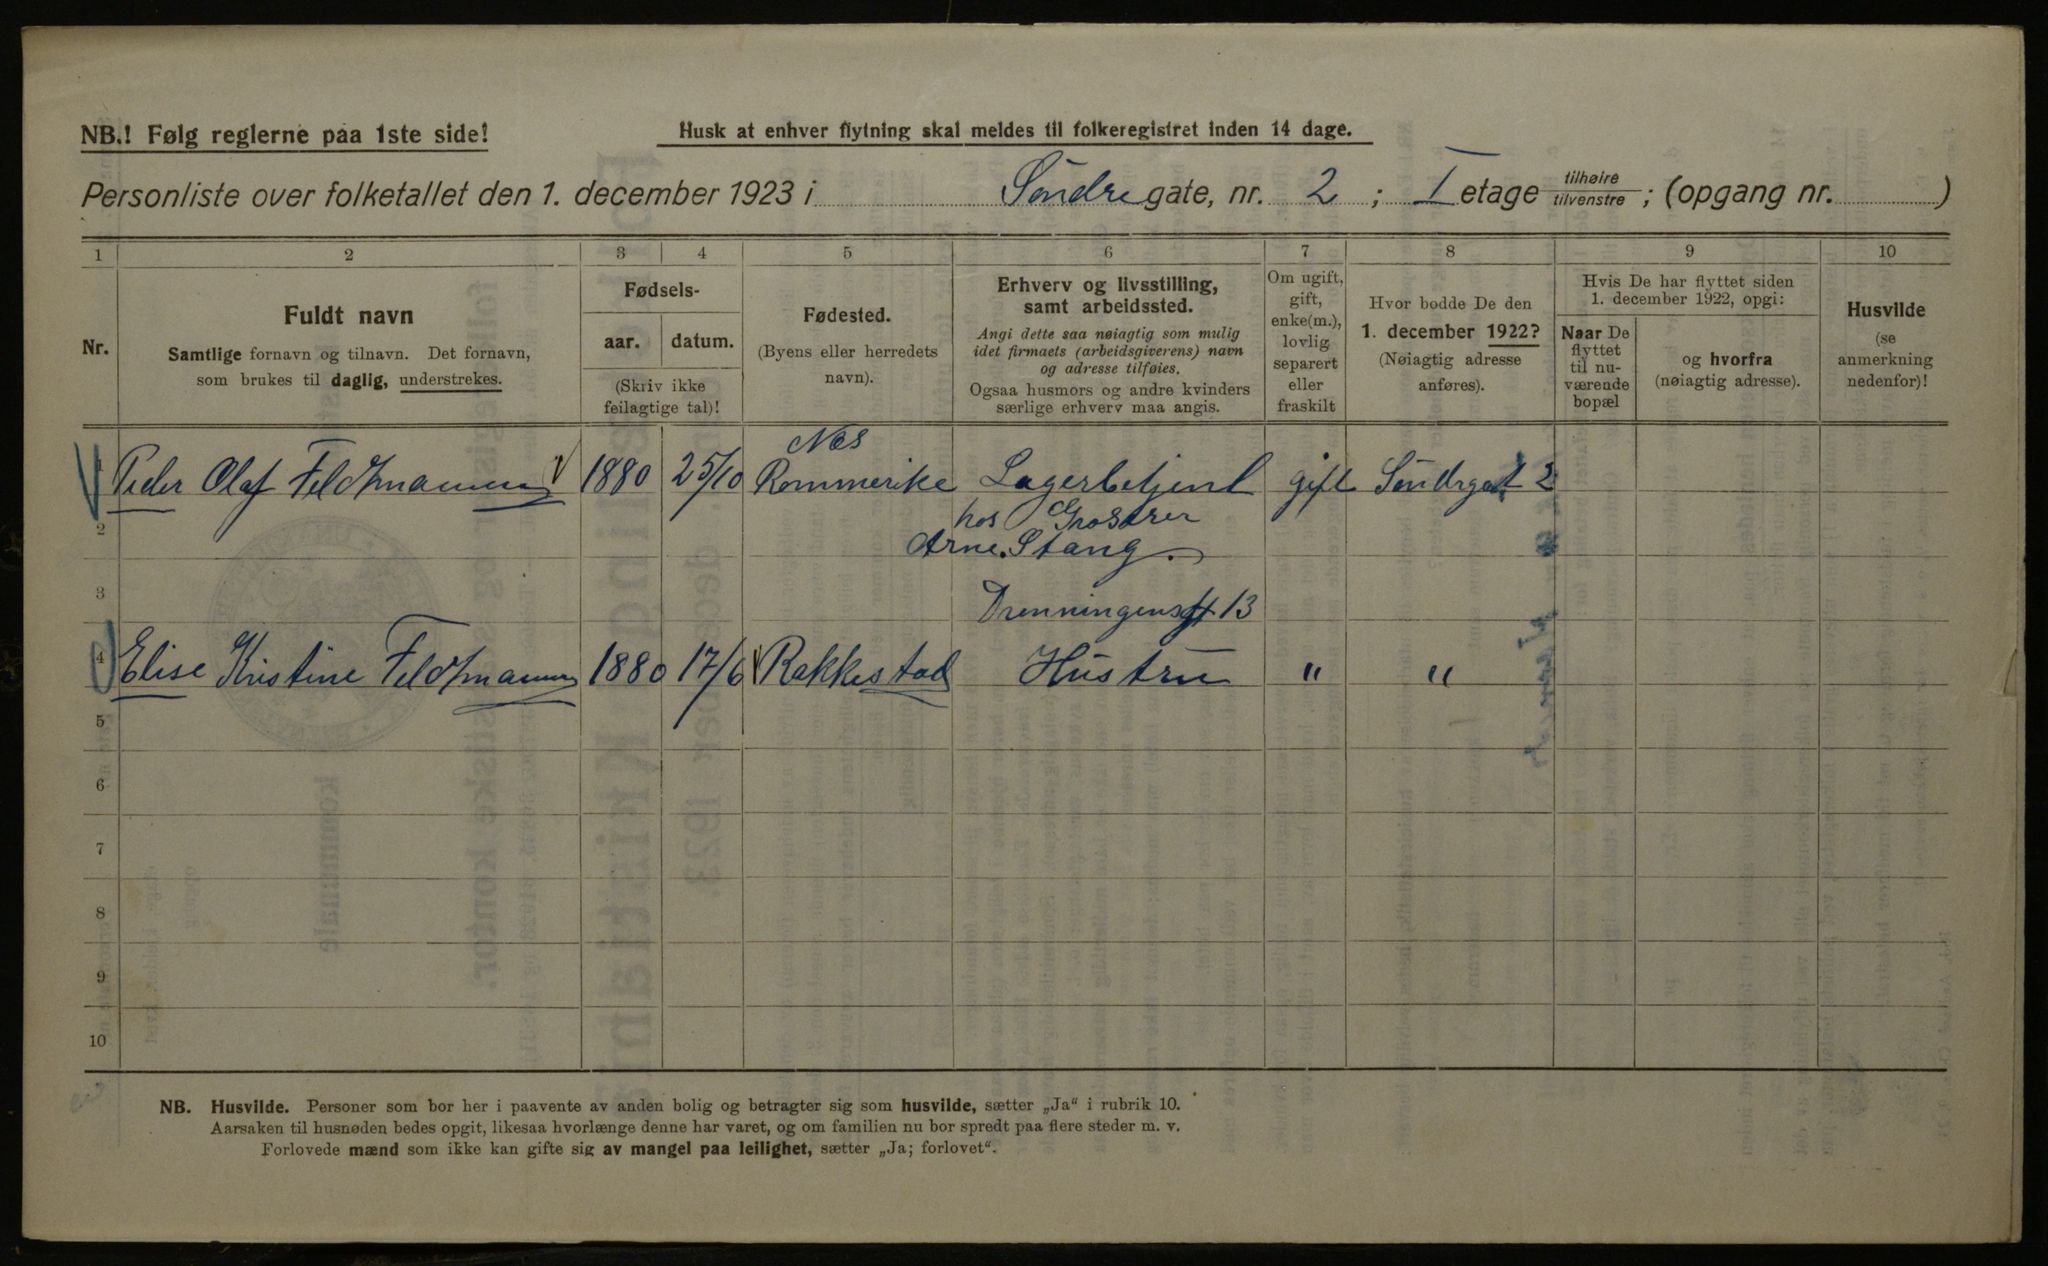 NB.! Følg reglerne paa 1ste side!
Husk at enhver flytning skal meldes til folkeregistret inden 14 dage.
Personliste over folketallet den 1. december 1923 i Söndre gate, nr. 2 ; I etage tilhøire tilvenstre ; (opgang nr. )
1 2 3 4 5 6 7 8 9 10
Nr.
Fuldt navn
Samtlige fornavn og tilnavn. Det fornavn,
som brukes til daglig, understrekes.
Fødsels-
aar. datum.
(Skriv ikke
feilagtige tal)!
Fødested.
(Byens eller herredets
navn).
Erhverv og livsstilling,
samt arbeidssted.
Angi dette saa nøiagtig som mulig
idet firmaets (arbeidsgiverens) navn
og adresse tilføies.
Ogsaa husmors og andre kvinders
særlige erhverv maa angis.
Om ugift,
gift,
enke(m.),
lovlig
separert
eller
fraskilt
Hvor bodde De den
1. december 1922?
(Nøiagtig adresse
anføres).
Hvis De har flyttet siden
1. december 1922, opgi:
Naar De
flyttet
til nu-
værende
bopæl
og hvorfra
(nøiagtig adresse).
Husvilde
(se
anmerkning
nedenfor)!
Nes
1 Peder Olaf Feldtmann 1880 25/10 Rommerike Lagerbetjent gift Söndregat 2
hos Groserer
2 Arne Stang.
3 Dronningensgt 13
4 Elise Kristine Feldtmann 1880 17/6 Rakkestad Hustru " "
5
6
7
8
9
10
NB. Husvilde. Personer som bor her i paavente av anden bolig og betragter sig som husvilde, sætter „Ja“ i rubrik 10.
Aarsaken til husnøden bedes opgit, likesaa hvorlænge denne har varet, og om familien nu bor spredt paa flere steder m. v.
Forlovede mænd som ikke kan gifte sig av mangel paa leilighet, sætter „Ja; forlovet“.